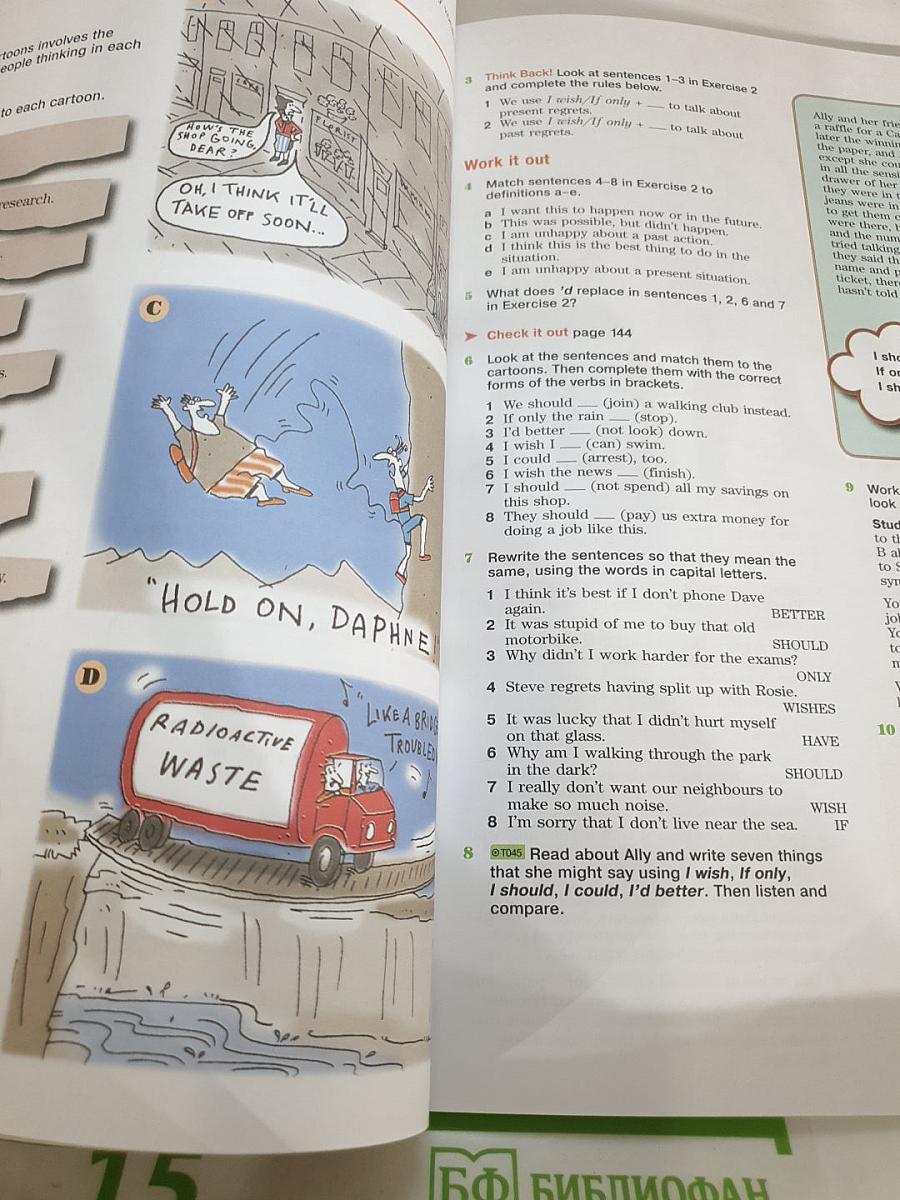 rtoons involves the
eople thinking in each
to each cartoon.
research.
HOW'S THE
SHOP GOING,
DEAR?
FLORIST
OH, I THINK IT'LL
TAKE OFF SOON...
C
"HOLD ON, DAPHNE!
D
RADIOACTIVE
WASTE
"LIKE A BRIDGE
TROUBLED
3 Think Back! Look at sentences 1–3 in Exercise 2
and complete the rules below.
1 We use I wish/If only + ___ to talk about
present regrets.
2 We use I wish/If only + ___ to talk about
past regrets.
Work it out
4 Match sentences 4–8 in Exercise 2 to
definitions a–e.
a I want this to happen now or in the future.
b This was possible, but didn't happen.
c I am unhappy about a past action.
d I think this is the best thing to do in the
situation.
e I am unhappy about a present situation.
5 What does 'd replace in sentences 1, 2, 6 and 7
in Exercise 2?
➤ Check it out page 144
6 Look at the sentences and match them to the
cartoons. Then complete them with the correct
forms of the verbs in brackets.
1 We should ___ (join) a walking club instead.
2 If only the rain ___ (stop).
3 I'd better ___ (not look) down.
4 I wish I ___ (can) swim.
5 I could ___ (arrest), too.
6 I wish the news ___ (finish).
7 I should ___ (not spend) all my savings on
this shop.
8 They should ___ (pay) us extra money for
doing a job like this.
7 Rewrite the sentences so that they mean the
same, using the words in capital letters.
1 I think it's best if I don't phone Dave
again. BETTER
2 It was stupid of me to buy that old
motorbike. SHOULD
3 Why didn't I work harder for the exams?
ONLY
4 Steve regrets having split up with Rosie.
WISHES
5 It was lucky that I didn't hurt myself
on that glass. HAVE
6 Why am I walking through the park
in the dark? SHOULD
7 I really don't want our neighbours to
make so much noise. WISH
8 I'm sorry that I don't live near the sea. IF
8 T045 Read about Ally and write seven things
that she might say using I wish, If only,
I should, I could, I'd better. Then listen and
compare.
Ally and her frie
a raffle for a Ca
later the winnin
the paper, and
except she cou
in all the sensi
drawer of her
they were in t
jeans were in
to get them o
were there, b
and the num
tried talking
they said th
name and p
ticket, there
hasn't told
I sho
If on
I sh
9 Work
look
Stud
to th
B al
to S
syn
Yo
jol
Yo
to
10
15
БФ БИБЛИОФАН